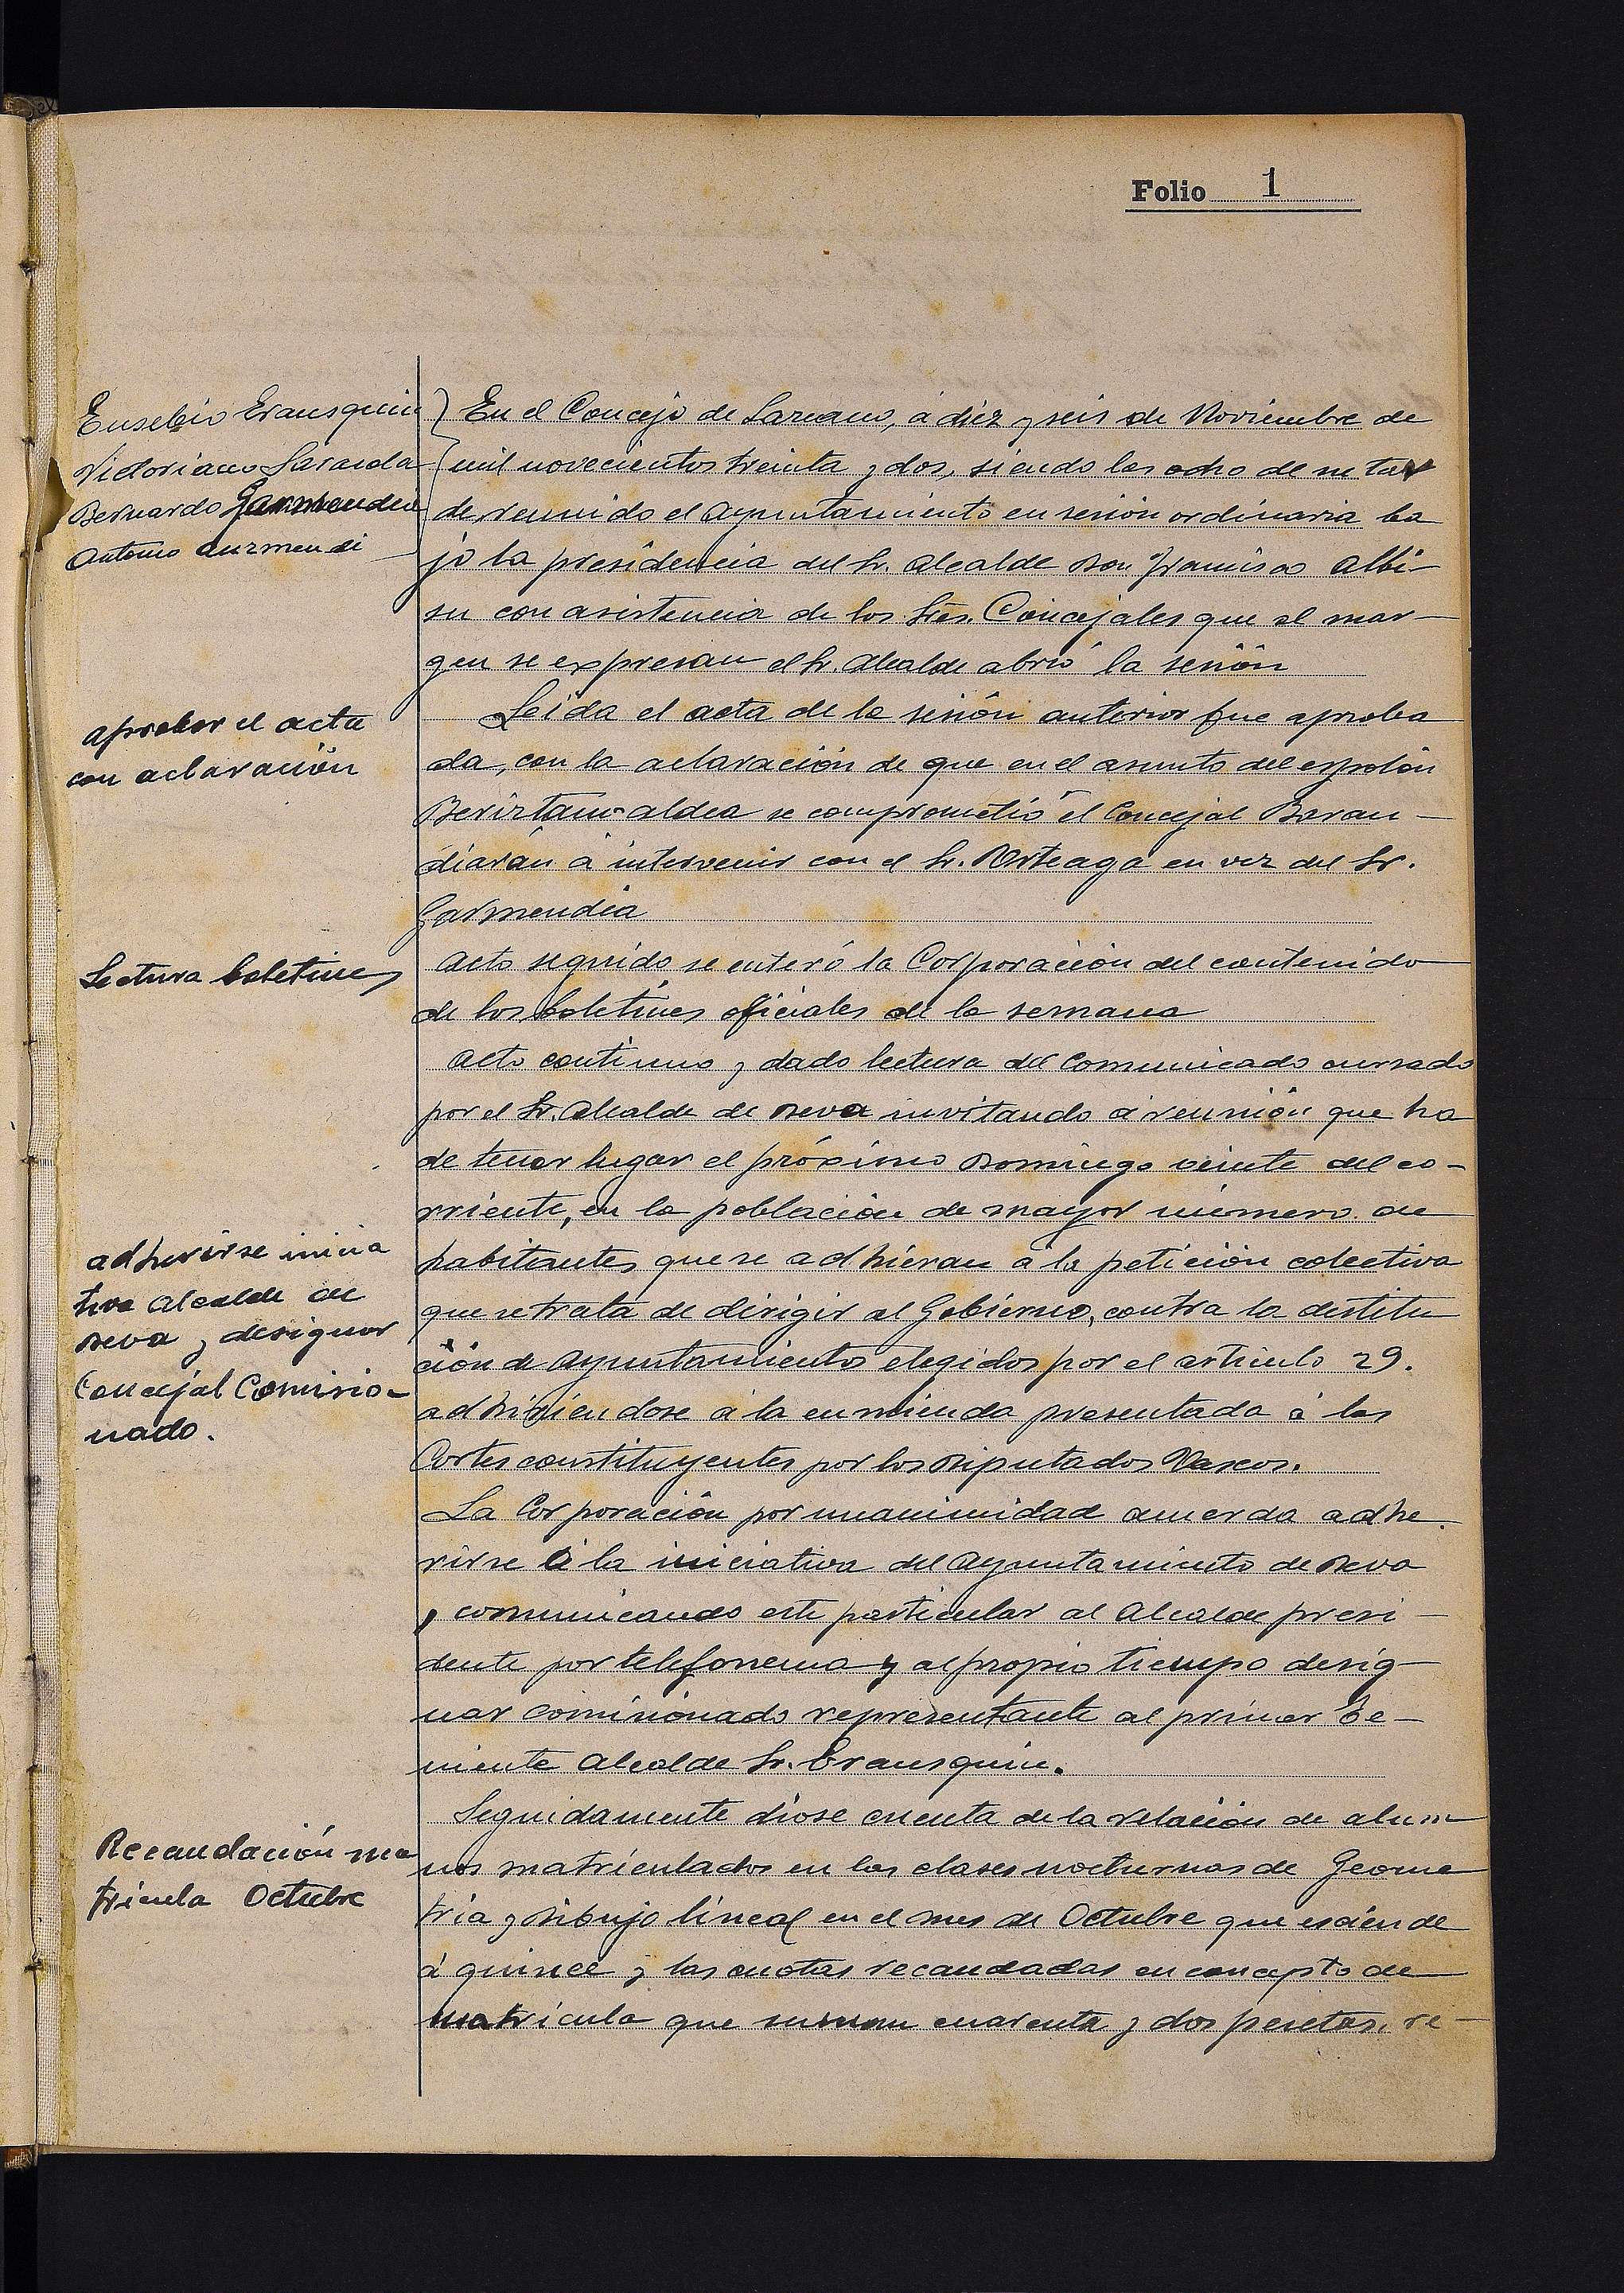 Folio 1
Eusebio Erausquin
Victoriano Laranda
Bernardo Garmendia
Antonio Auzmendi
En el Concejo de Lazcano, á diez y seis de Noviembre de
mil novecientos treinta y dos, siendo las ocho de su tar
de reunido el Ayuntamiento en sesión ordinaria ba
jo la presidencia del Sr. Alcalde Don Francisco Albi-
su con asistencia de los Sres. Concejales que al mar-
gen se expresan el Sr. Alcalde abrió la sesión
aprobar el acta
con aclaración
Leida el acta de la sesión anterior fue aproba
da, con la aclaración de que en el asunto del espolón
Beriztain-aldea se comprometió el Concejal Baran-
diarán á intervenir con el Sr. Arteaga en vez del Sr.
Garmendia
Lectura boletines
Acto seguido se enteró la Corporación del contenido
de los boletines oficiales de la semana
adherirse inicia
tiva Alcalde de
Deva y designar
Concejal Comisio-
nado.
Acto continuo y dado lectura del comunicado cursado
por el Sr. Alcalde de Deva invitando á reunión que ha
de tener lugar el próximo Domingo veinte del co-
rriente, en la población de mayor número de
habitantes que se adhieran á la petición colectiva
que se trata de dirigir al Gobierno, contra la destitu
ción de Ayuntamientos elegidos por el artículo 29.
adhiriéndose á la enmienda presentada á las
Cortes constituyentes por los Diputados Vascos.
La Corporación por unanimidad acuerda adhe
rirse á la iniciativa del Ayuntamiento de Deva
, comunicando este particular al Alcalde presi-
dente por telefonema y al propio tiempo desig-
nar comisionado representante al primer Te-
niente Alcalde Sr. Erausquin.
Recaudación ma
trícula Octubre
Seguidamente diose cuenta de la relación de alum
nos matriculados en las clases nocturnas de Geome
tría y Dibujo lineal en el mes de Octubre que asciende
á quince y las cuotas recaudadas en concepto de
matrícula que suman cuarenta y dos pesetas, re-